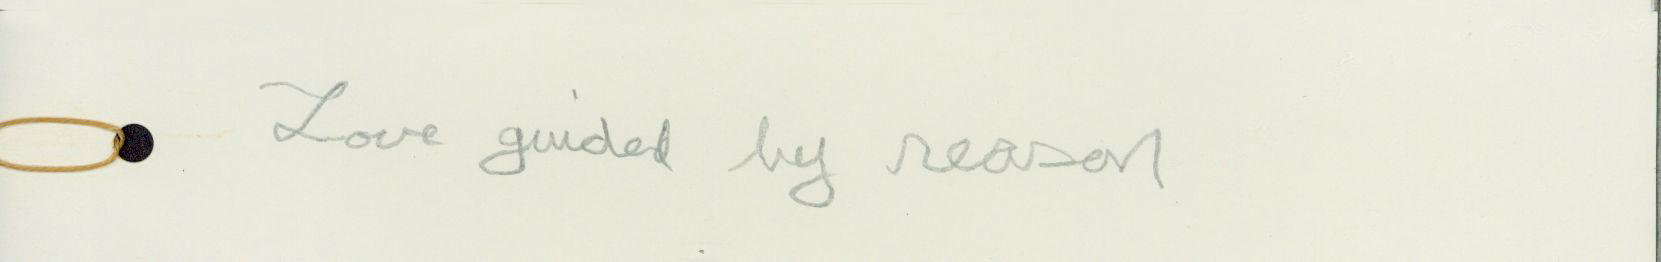 Love guided by reason